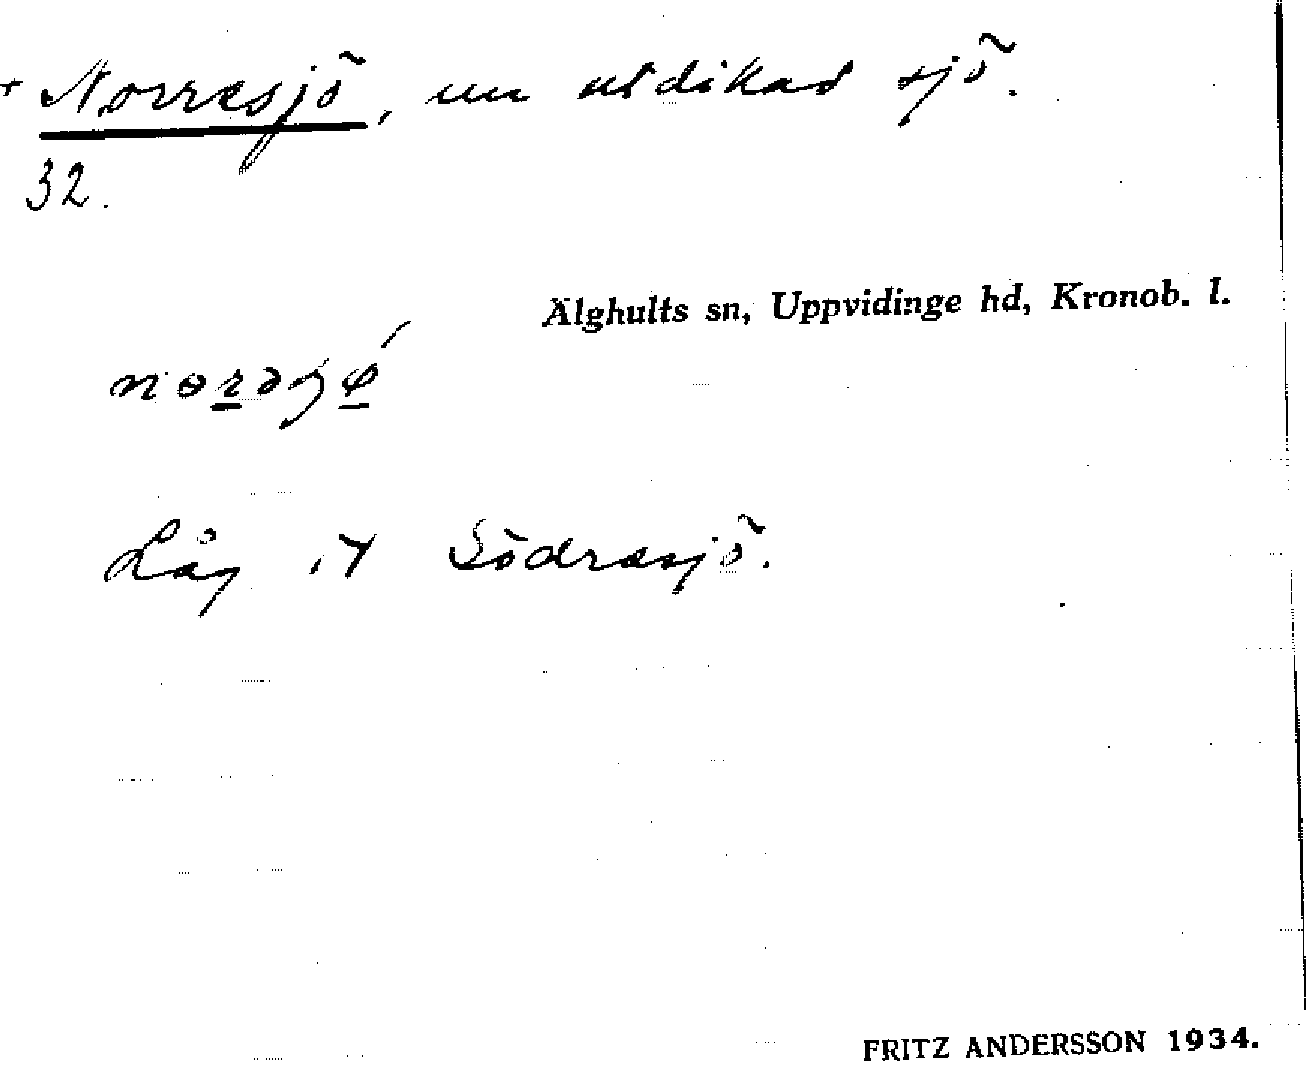 + Norresjö, en utdikad sjö.
32.
Älghults sn, Uppvidinge hd, Kronob. l.
Låg i Södrasjö.
FRITZ ANDERSSON 1934.